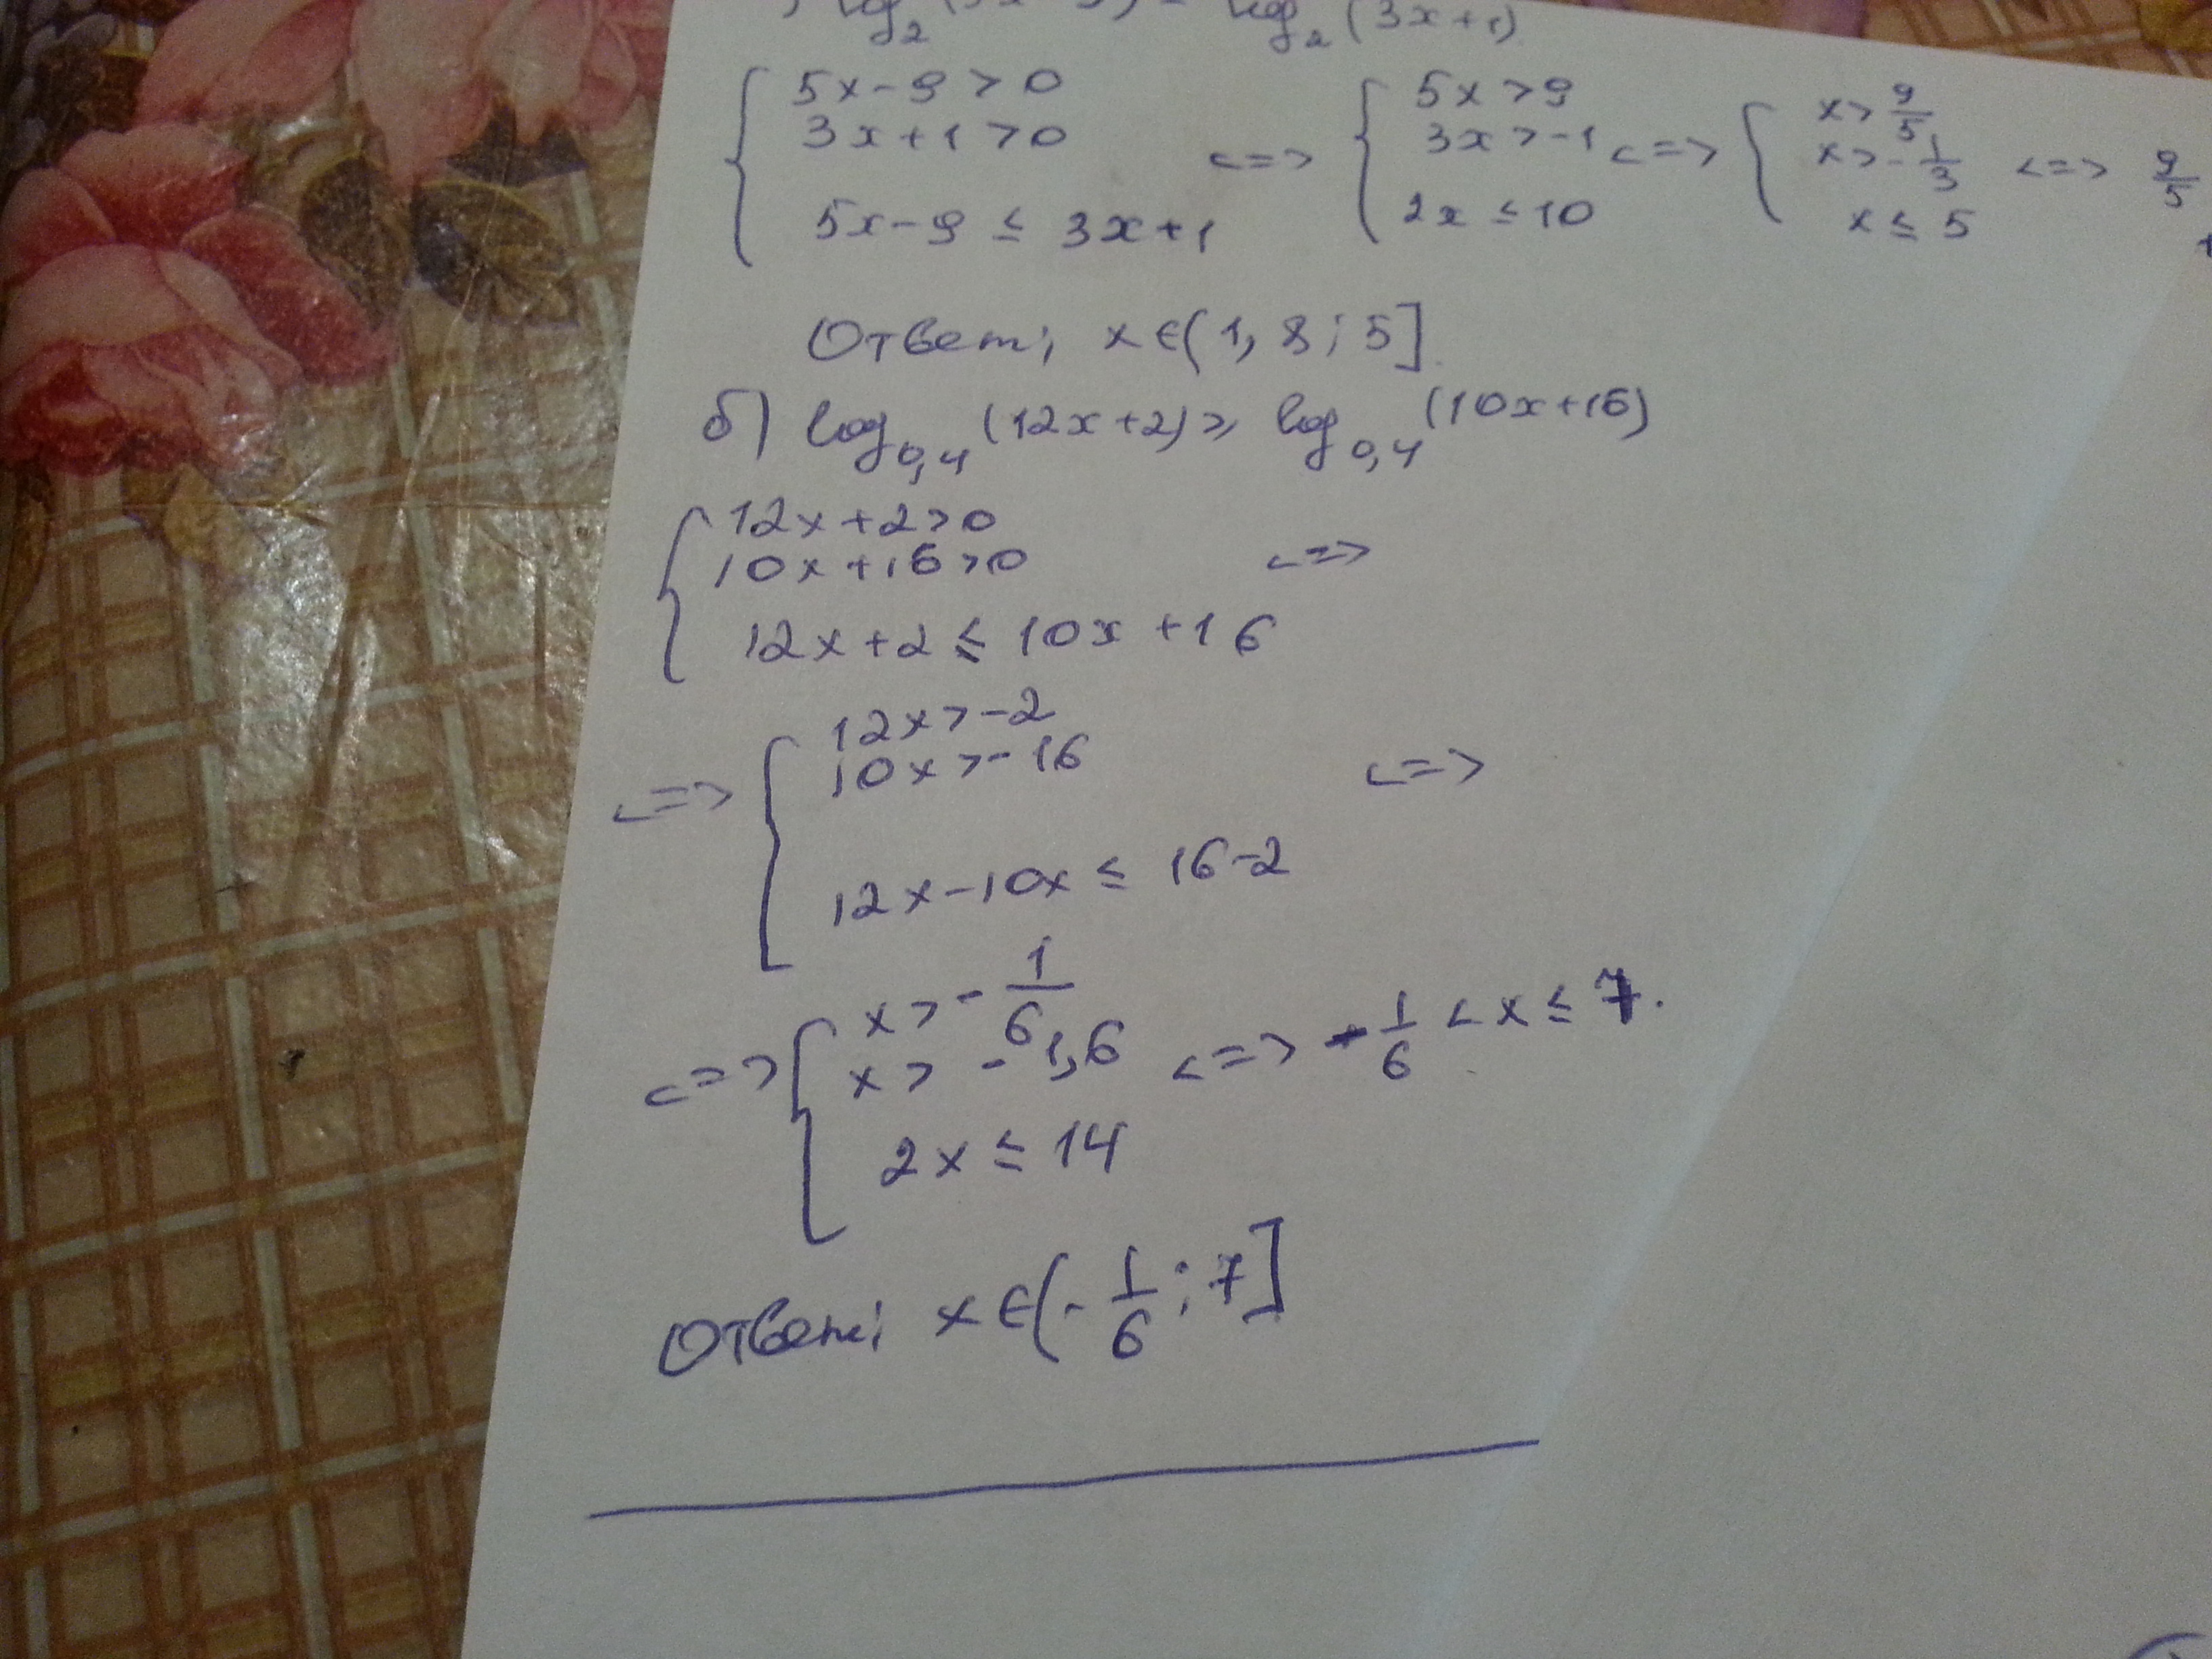 log₂ (3x+1)
{ 5x-9>0
3x+1>0 <=> { 5x>9
3x>-1 <=> { x> 9/5
x>-1/3 <=> 9/5
5x-9 ≤ 3x+1
2x ≤ 10
x ≤ 5
Ответ; x∈(1,8; 5]
б) log₀,₄ (12x+2) ≥ log₀,₄ (10x+16)
{ 12x+2>0
10x+16>0 <=>
12x+2 ≤ 10x+16
<=> { 12x>-2
10x>-16 <=>
12x-10x ≤ 16-2
<=> { x>-1/6
x> -1,6 <=> -1/6 < x ≤ 7.
2x ≤ 14
Ответ; x∈(-1/6; 7]